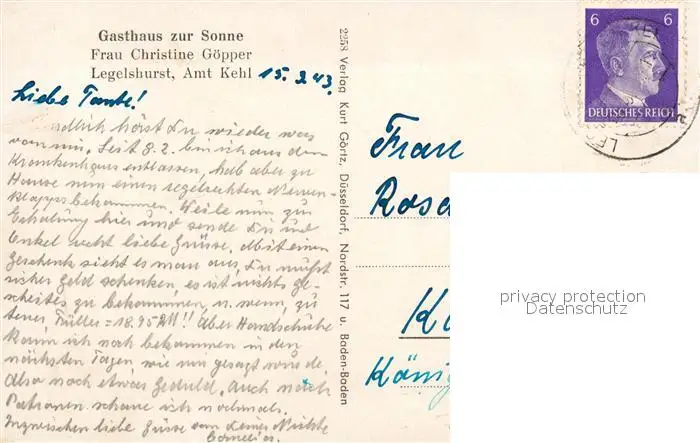 Gasthaus zur Sonne
Frau Christine Göpper
Legelshurst, Amt Kehl 15. 2. 43.
Liebe Tante!
Endlich hörst Du wieder was
von mir. Seit 8.2. bin ich aus dem
Krankenhaus entlassen, hab aber zu
Hause nun einen regelrechten Nerven-
klapps bekommen. Weile nun zur
Erholung hier und sende Dir und
Onkel recht liebe Grüsse. Mit einem
Geschenk sieht es mau aus, Du mußt
sicher Geld schenken, es ist nichts ge-
scheites zu bekommen u. wenn, zu
teuer, Füller = 18.95 RM!! Aber Handschuhe
kann ich noch bekommen in den
nächsten Tagen, wie mir gesagt wurde.
Also noch etwas Geduld. Auch nach
Patronen schaue ich nochmal.
Inzwischen liebe Grüsse von Deiner Nichte
2258 Verlag Kurt Görtz, Düsseldorf, Nordstr. 117 u. Baden-Baden
6 6
DEUTSCHES REICH
Frau
Rosa
K
König
privacy protection
Datenschutz